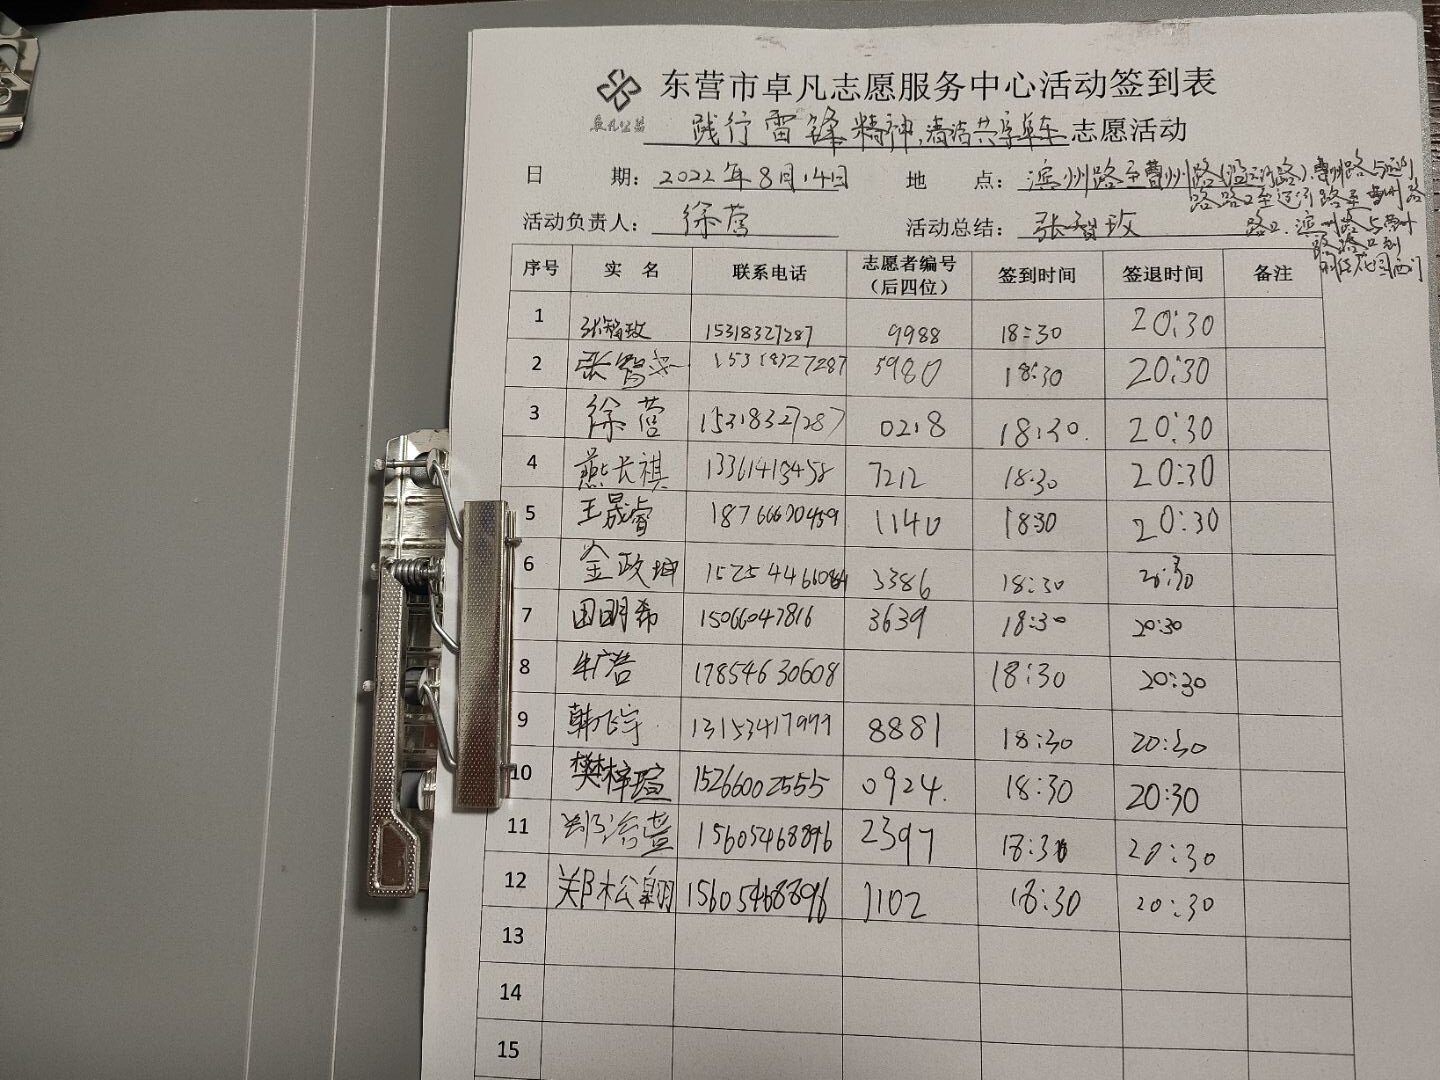 东营市卓凡志愿服务中心活动签到表
卓凡公益
践行雷锋精神,清洁共享单车志愿活动
日 期: 2022年8月14日 地 点: 滨州路至曹州路
活动负责人: 徐营 活动总结: 张智玫
序号 实 名 联系电话 志愿者编号(后四位) 签到时间 签退时间 备注
1 张智玫 15318327287 9988 18:30 20:30
2 张智 15318327287 5980 18:30 20:30
3 徐营 15318327287 0218 18:30. 20:30
4 燕长祺 13361413458 7212 18:30 20:30
5 王晟睿 18766620459 1140 1830 20:30
6 金政坤 3386 18:30 20:30
7 田明希 15066047816 3639 18:30 20:30
8 牛广浩 17854630608 18:30 20:30
9 韩飞宇 13153417999 8881 18:30 20:30
10 樊梓瑄 15266002555 0924. 18:30 20:30
11 15605468896 2397 18:30 20:30
12 郑松翱 15605468896 1102 18:30 20:30
13
14
15